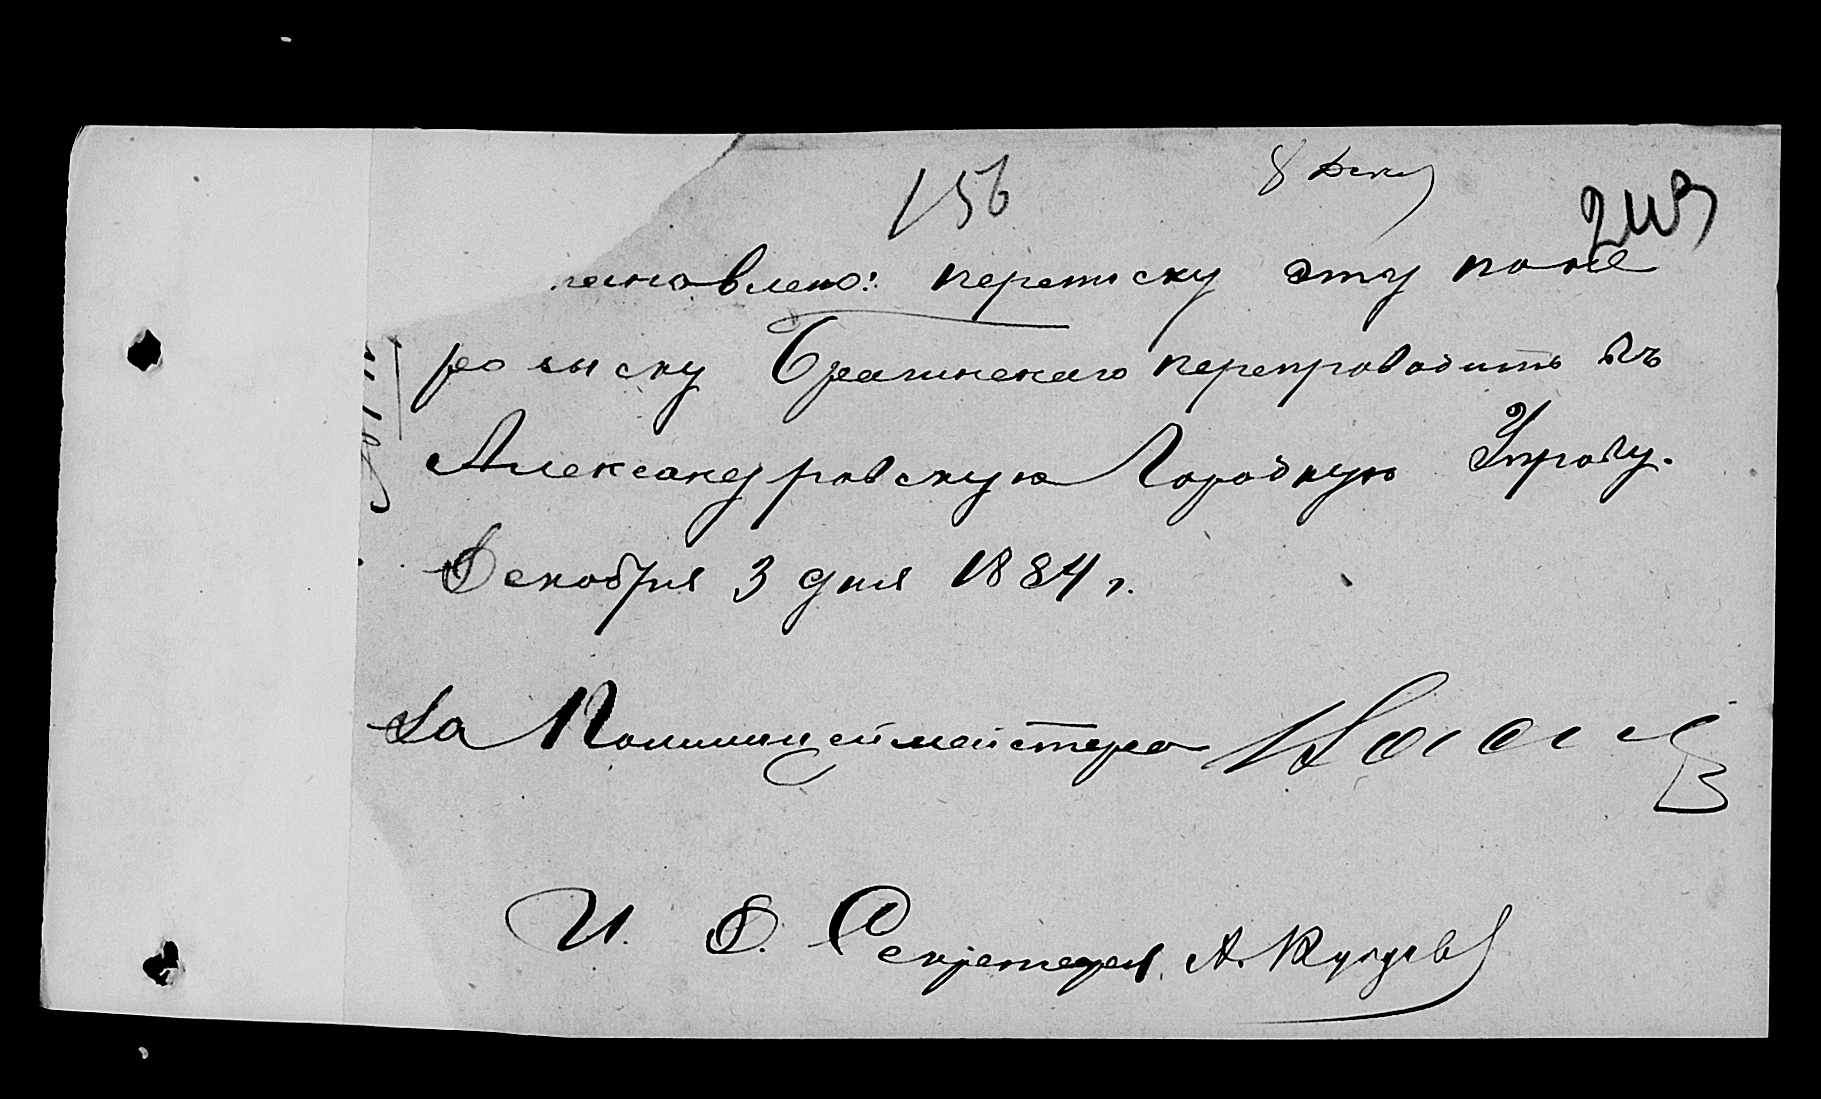 156
8 Дек
243
становлено: переписку эту по не
розыску Брагинскаго перепроводить въ
Александровскую Городскую Управу.
Декабря 3 дня 1884 г.
За Полициймейстера
И. Д. Секретаря А.